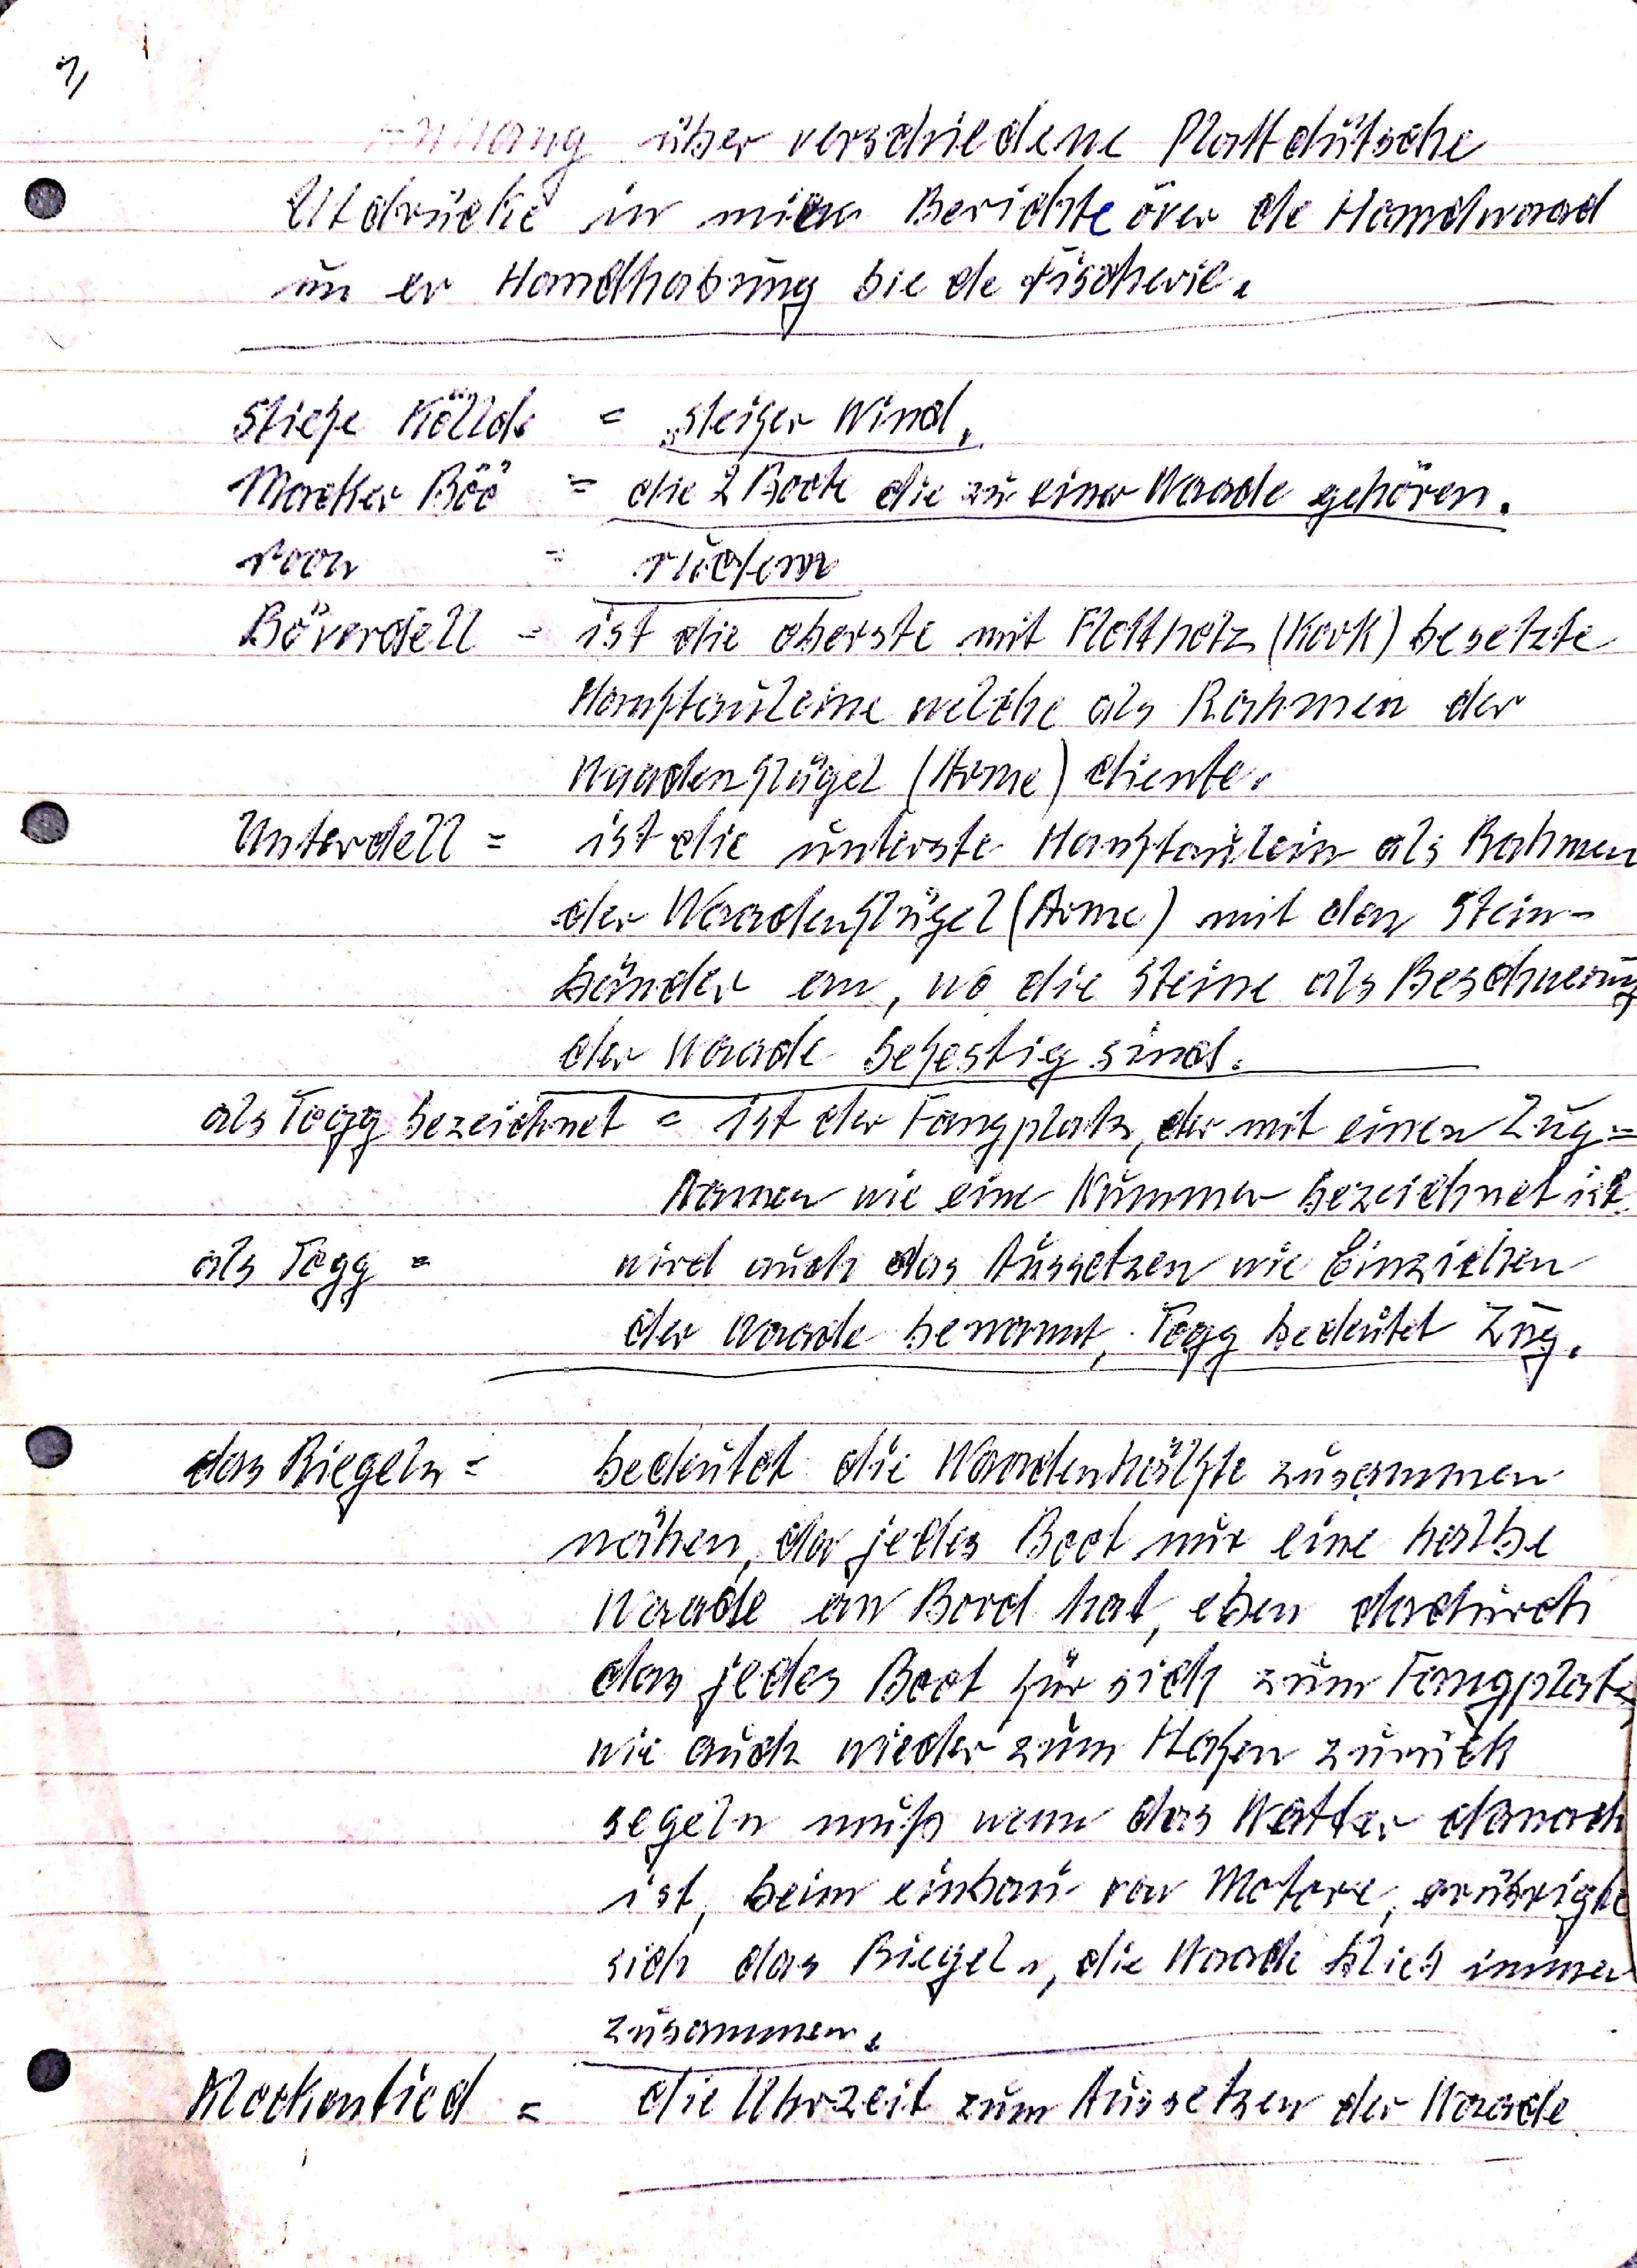 Anhang über verschiedene Plattdütsche
Utdrücke in mien Berichte över de Handwaad
un er Handhabung bie de Fischerie.
Stiefe Köllde = „steifer Wind„
Macker Böö = die 2 Boote die zu einer Waade gehören.
roon = rudern
Böverdell = ist die oberste mit Flottholz (Kork) besetzte
Haupttauleine welche als Rahmen der
Waadenflügel (Arme) diente.
Unterdell = ist die unterste Haupttaulein als Rahmen
der Waadenflügel (Arme) mit den Stein-
bänder an, wo die Steine als Beschwerung
der Waade befestig sind.
als Togg bezeichnet = ist der Fangplatz, der mit einen Zug=
Namen wie eine Nummer bezeichnet ist.
als Togg = wird auch das Aussetzen wie Einziehen
der Waade benannt, Togg bedeutet Zug.
das Riegeln = bedeutet die Waadenhälfte zusammen
nähen, da jedes Boot nur eine halbe
Waade an Bord hat, eben dadurch
das jedes Boot für sich zum Fangplatz,
wie auch wieder zum Hafen zurück
segeln muß wenn das Wetter danach
ist, beim einbau von Motore, erübrigte
sich das Riegeln, die Waade blieb immer
zusammen.
Klockentied = die Uhrzeit zum Aussetzen der Waade